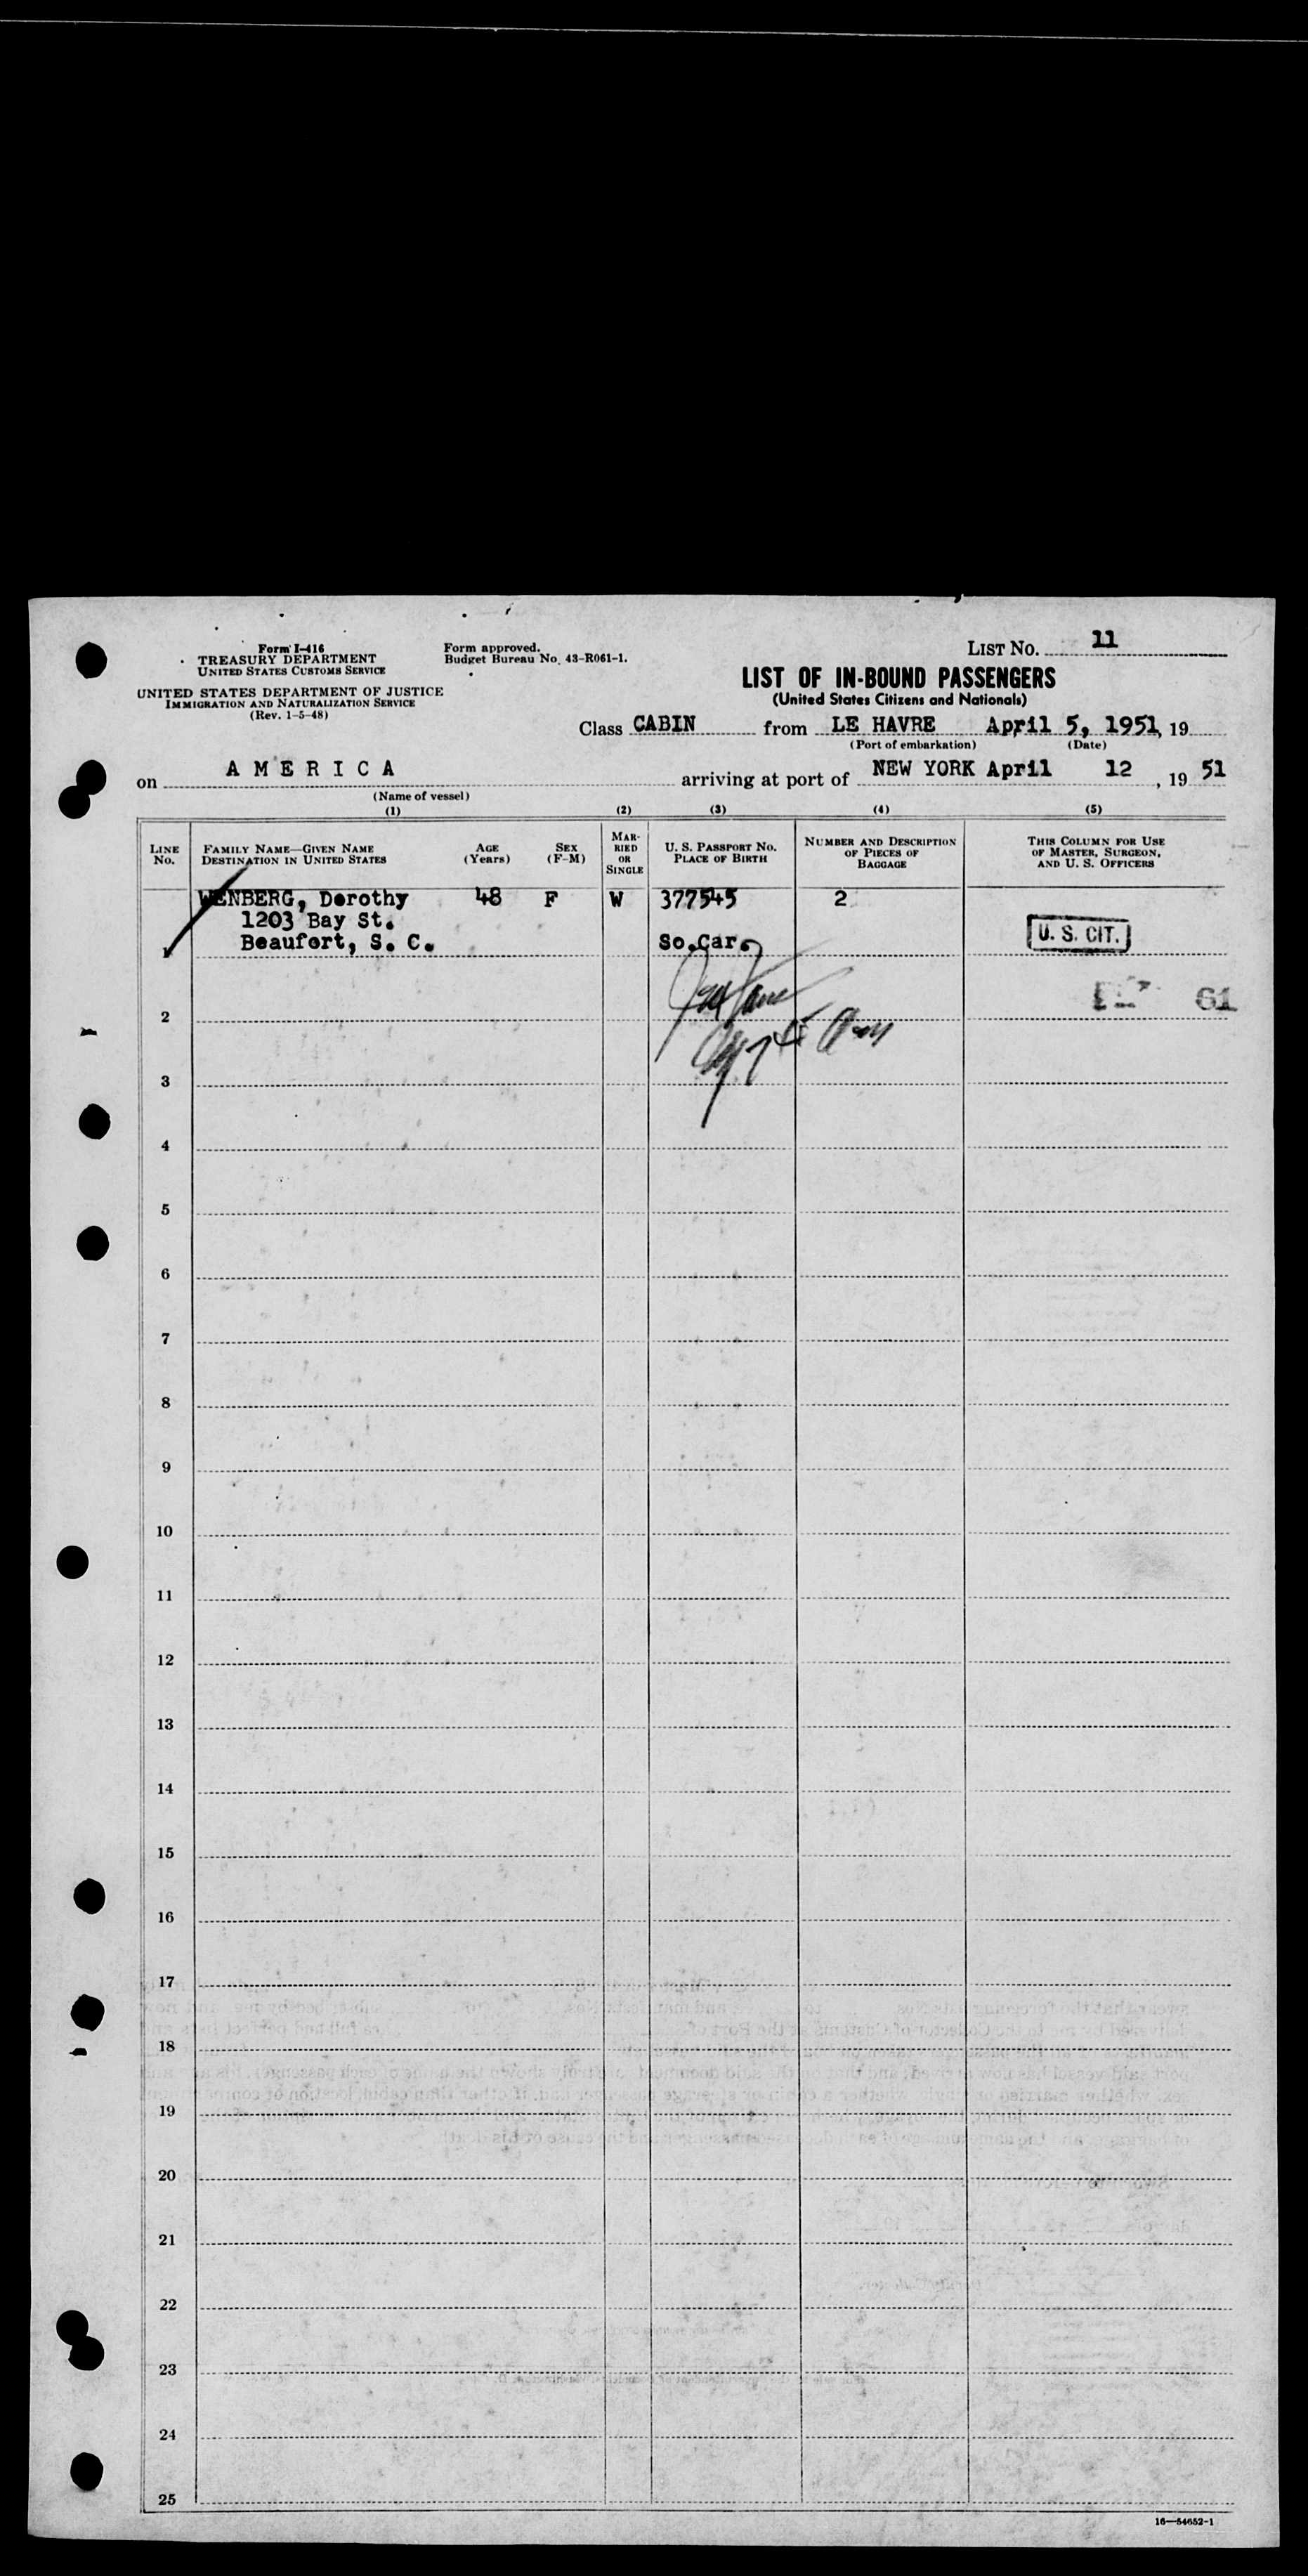 Form I-416
TREASURY DEPARTMENT
UNITED STATES CUSTOMS SERVICE
UNITED STATES DEPARTMENT OF JUSTICE
IMMIGRATION AND NATURALIZATION SERVICE
(Rev. 1-5-48)
Form approved.
Budget Bureau No. 43-R061-1.
LIST NO. 11
LIST OF IN-BOUND PASSENGERS
(United States Citizens and Nationals)
Class CABIN from LE HAVRE April 5, 1951, 19
(Port of embarkation) (Date)
on A M E R I C A arriving at port of NEW YORK April 12, 19 51
(Name of vessel)
(1) (2) (3) (4) (5)
LINE NO.
FAMILY NAME—GIVEN NAME
DESTINATION IN UNITED STATES
AGE
(Years)
SEX
(F-M)
MAR-
RIED
OR
SINGLE
U. S. PASSPORT NO.
PLACE OF BIRTH
NUMBER AND DESCRIPTION
OF PIECES OF
BAGGAGE
THIS COLUMN FOR USE
OF MASTER, SURGEON,
AND U. S. OFFICERS
WENBERG, Dorothy 48 F W 377545 2
1203 Bay St.
Beaufort, S. C. So.Car.
U. S. CIT.
1
61
2
3
4
5
6
7
8
9
10
11
12
13
14
15
16
17
18
19
20
21
22
23
24
25
16—54652-1